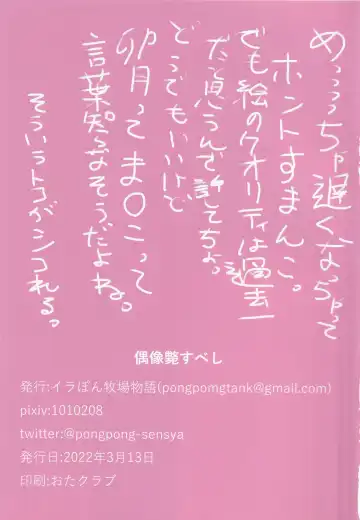 めっっっちゃ遅くなっちゃって
ホントすまんこ。
でも絵のクオリティは過去一
だと思うんで許してちょ。
どうでもいいけど
卯月ってま〇こって
言葉知らなそうだよね。
そういうトコがシコれる。
偶像斃すべし
発行:イラぽん牧場物語(pongpomgtank@gmail.com)
pixiv:1010208
twitter:@pongpong-sensya
発行日:2022年3月13日
印刷:おたクラブ